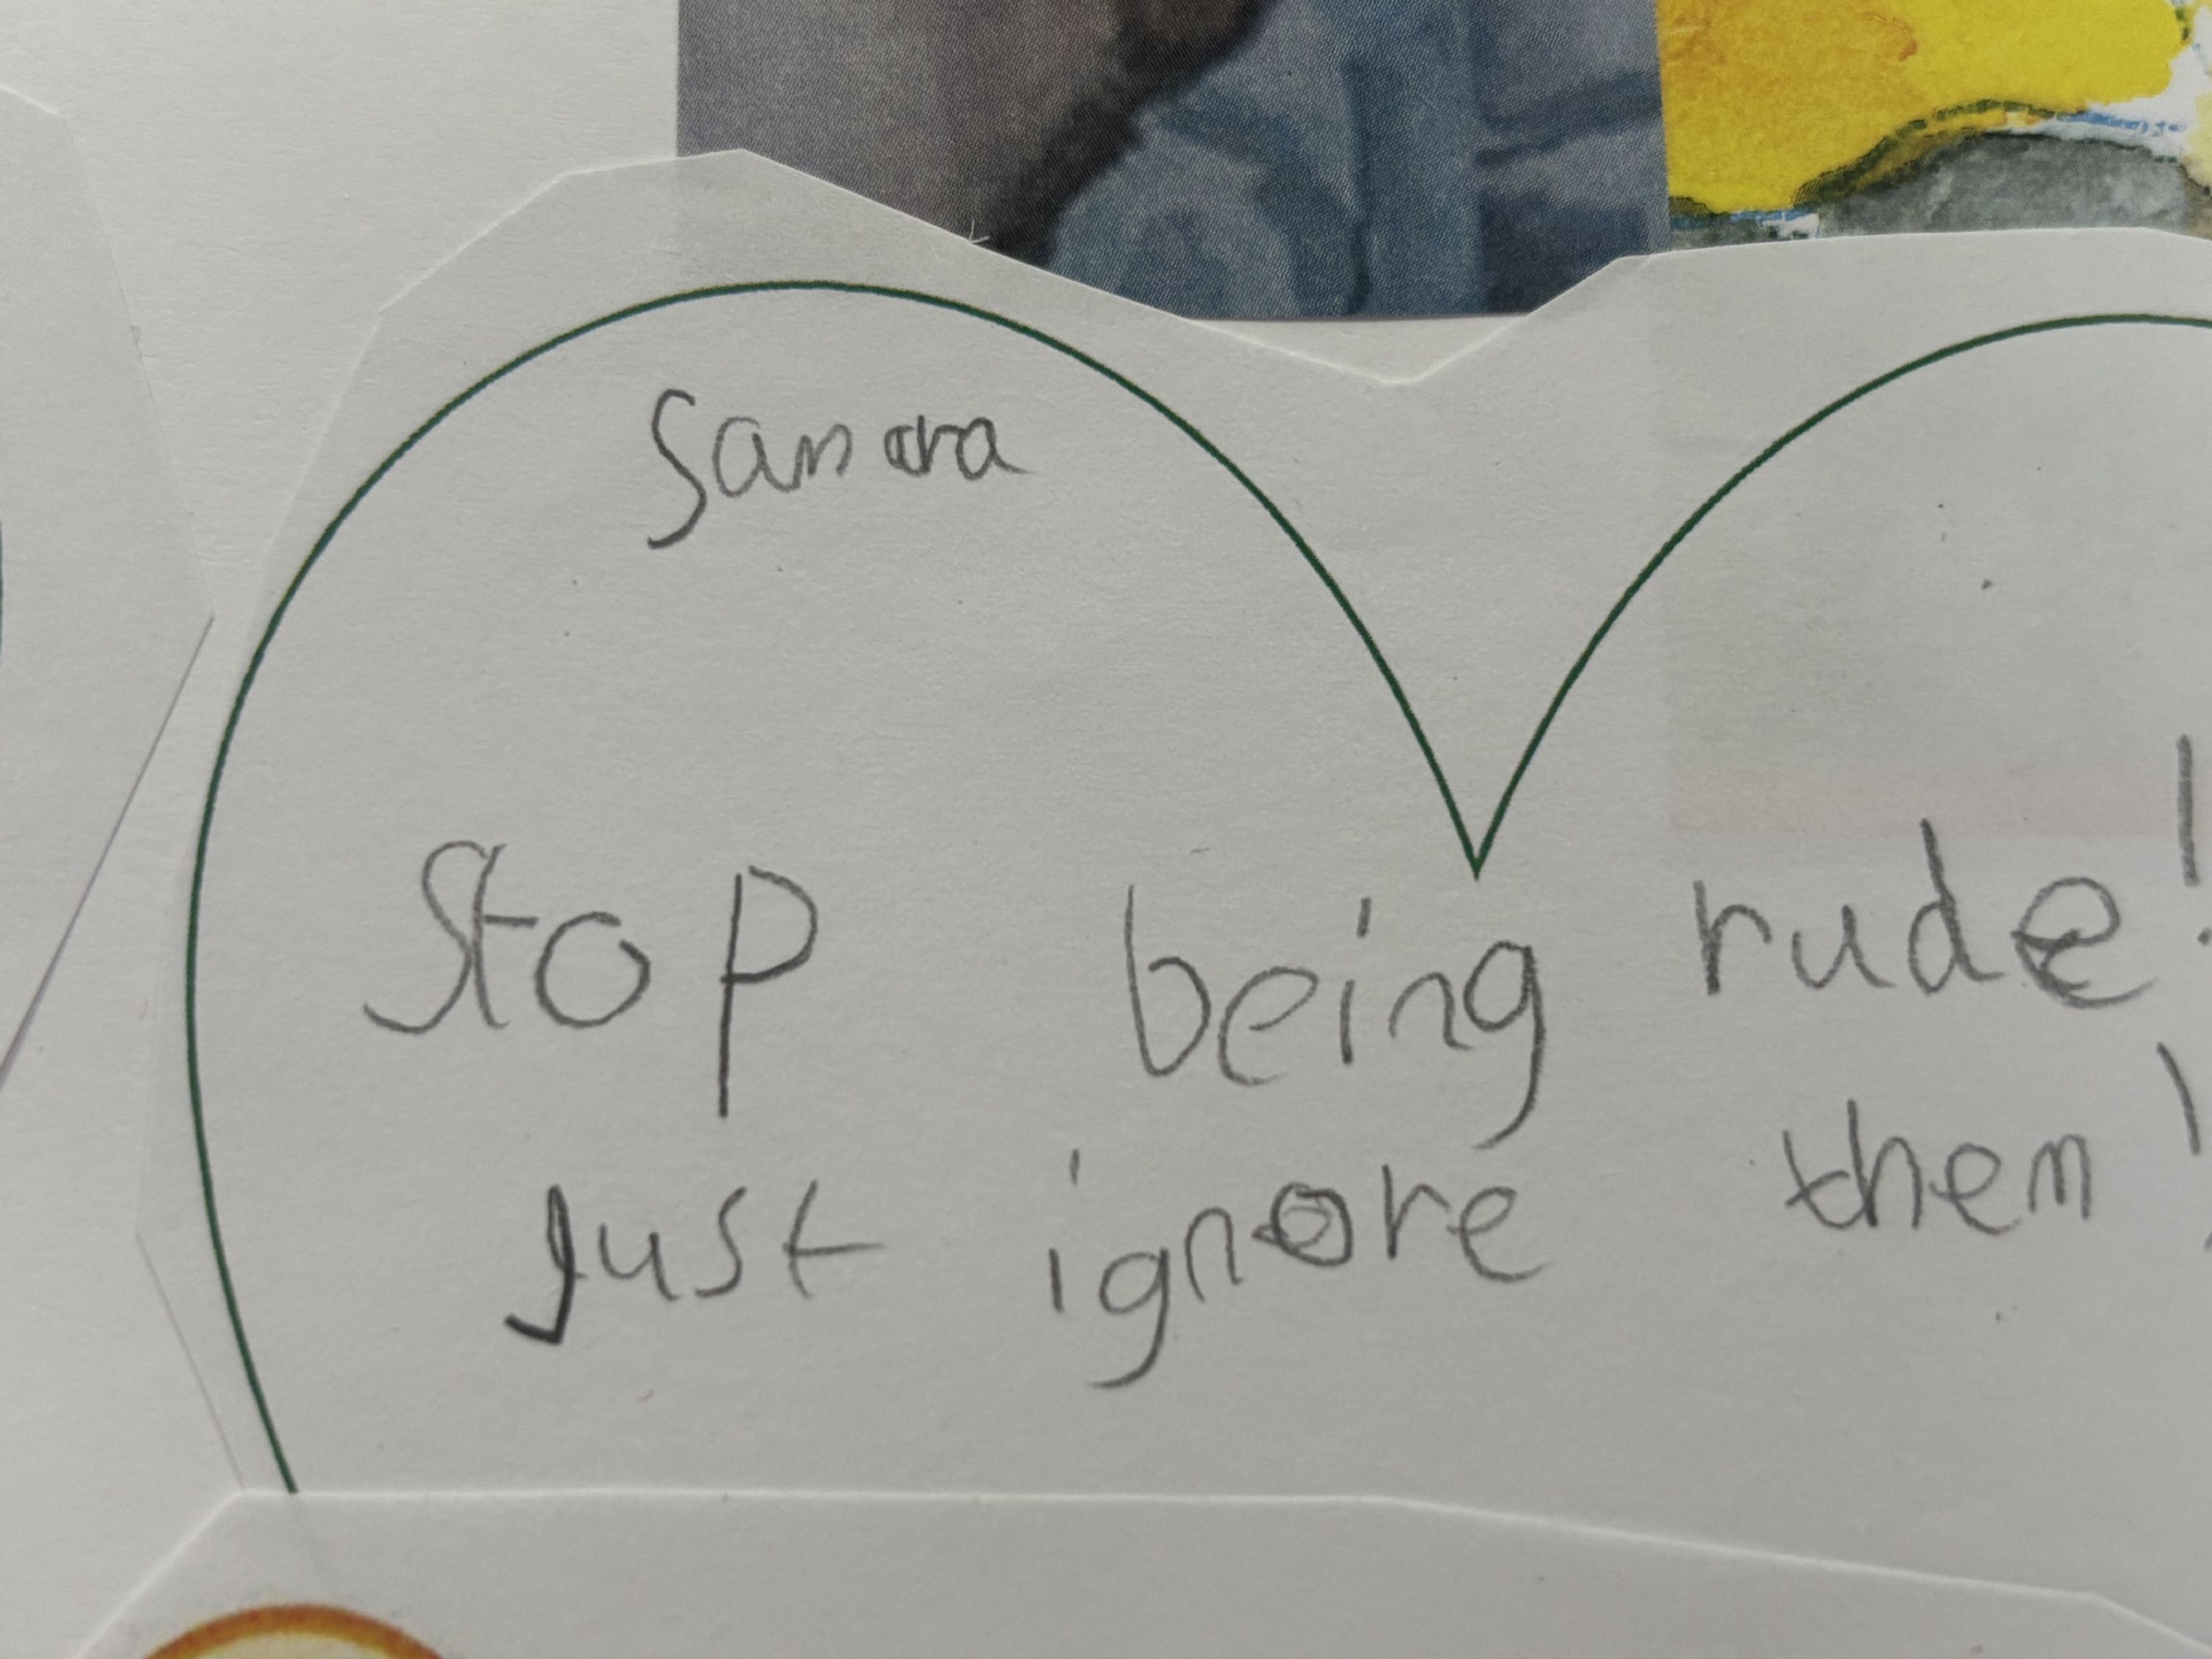 Samara
Stop being rude!
Just ignore them!